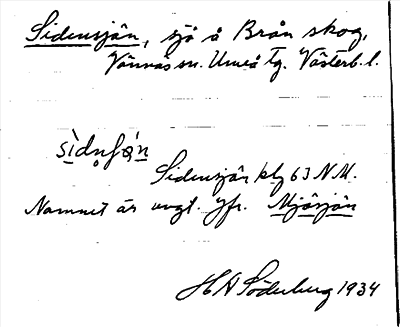 Sidensjön, sjö å Brån skog,
Vännäs sn. Umeå tg. Västerb. l.
Sidensjön blz 63 N.M.
Namnet är avgt. Jfr. Mjösjön
H A Söderberg 1934